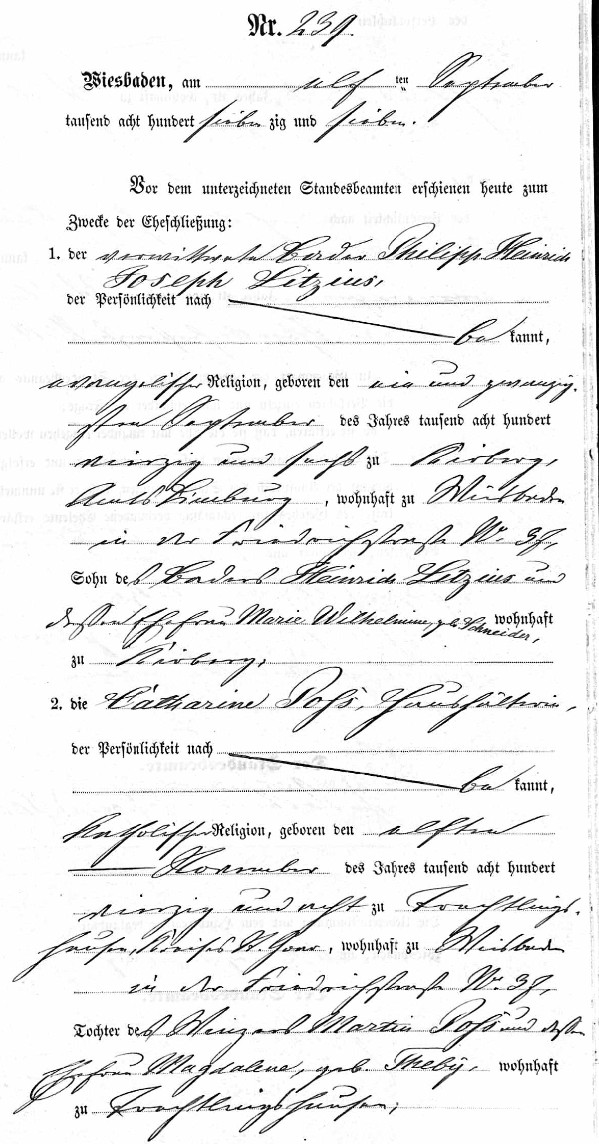 Nr. 239.
Wiesbaden, am elf ten September
tausend acht hundert sieben zig und sieben.
Vor dem unterzeichneten Standesbeamten erschienen heute zum
Zwecke der Eheschließung:
1. der verwittwete Bader Philipp Heinrich
Joseph Litzius,
der Persönlichkeit nach
be kannt,
evangelischer Religion, geboren den ein und zwanzig-
sten September des Jahres tausend acht hundert
vierzig und sechs zu Kirberg,
Amts Limburg, wohnhaft zu Wiesbaden
in der Friedrichstraße No. 37,
Sohn des Baders Heinrich Litzius und
dessen Ehefrau Marie Wilhelmine, geb. Schneider, wohnhaft
zu Kirberg,
2. die Catharine Poß, Haushälterin,
der Persönlichkeit nach
be kannt,
katholischer Religion, geboren den elften
November des Jahres tausend acht hundert
vierzig und acht zu Trechtlings-
hausen, Kreises St. Goar, wohnhaft zu Wiesbaden
in der Friedrichstraße No. 37,
Tochter des Winzers Martin Poß und dessen
Ehefrau Magdalene, geb. Theby, wohnhaft
zu Trechtlingshausen;